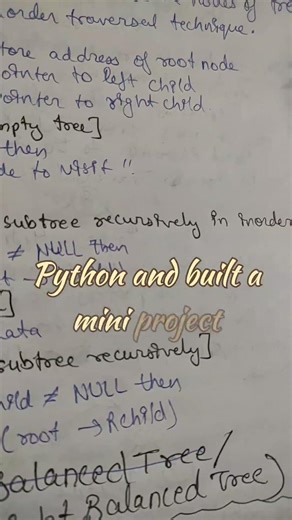 nodes of tre
order traversal technique.
tore address of root node
ointer to left child
ointer to right child.
mpty tree]
then
de to visit "
subtree recursively in inorder
≠ NULL then
Python and built a
mini project
ata
subtree recursively]
hild ≠ NULL then
(root → Rchild)
Balanced Tree/
Balanced Tree)